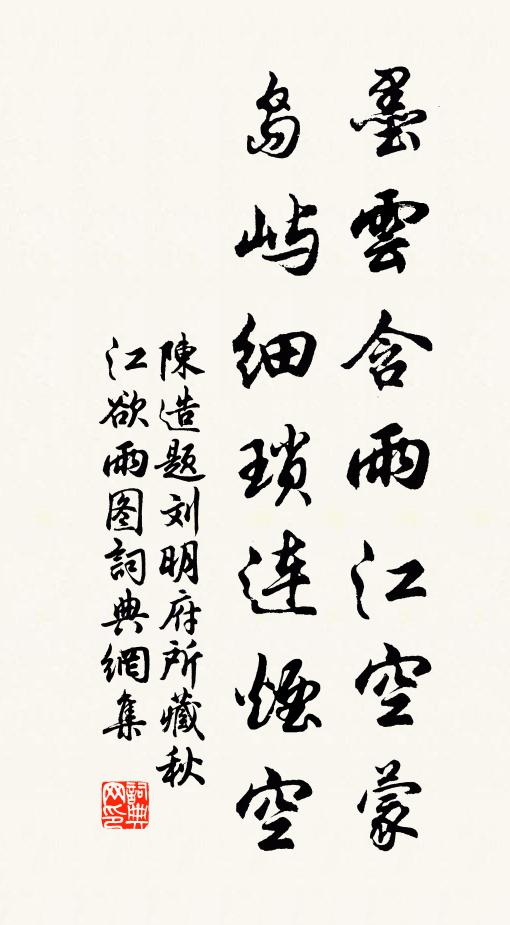 墨雲含雨江空蒙
島嶼細瑣連煙空
陳造題刘明府所藏秋
江欲雨图詞典網集
詞典
网印